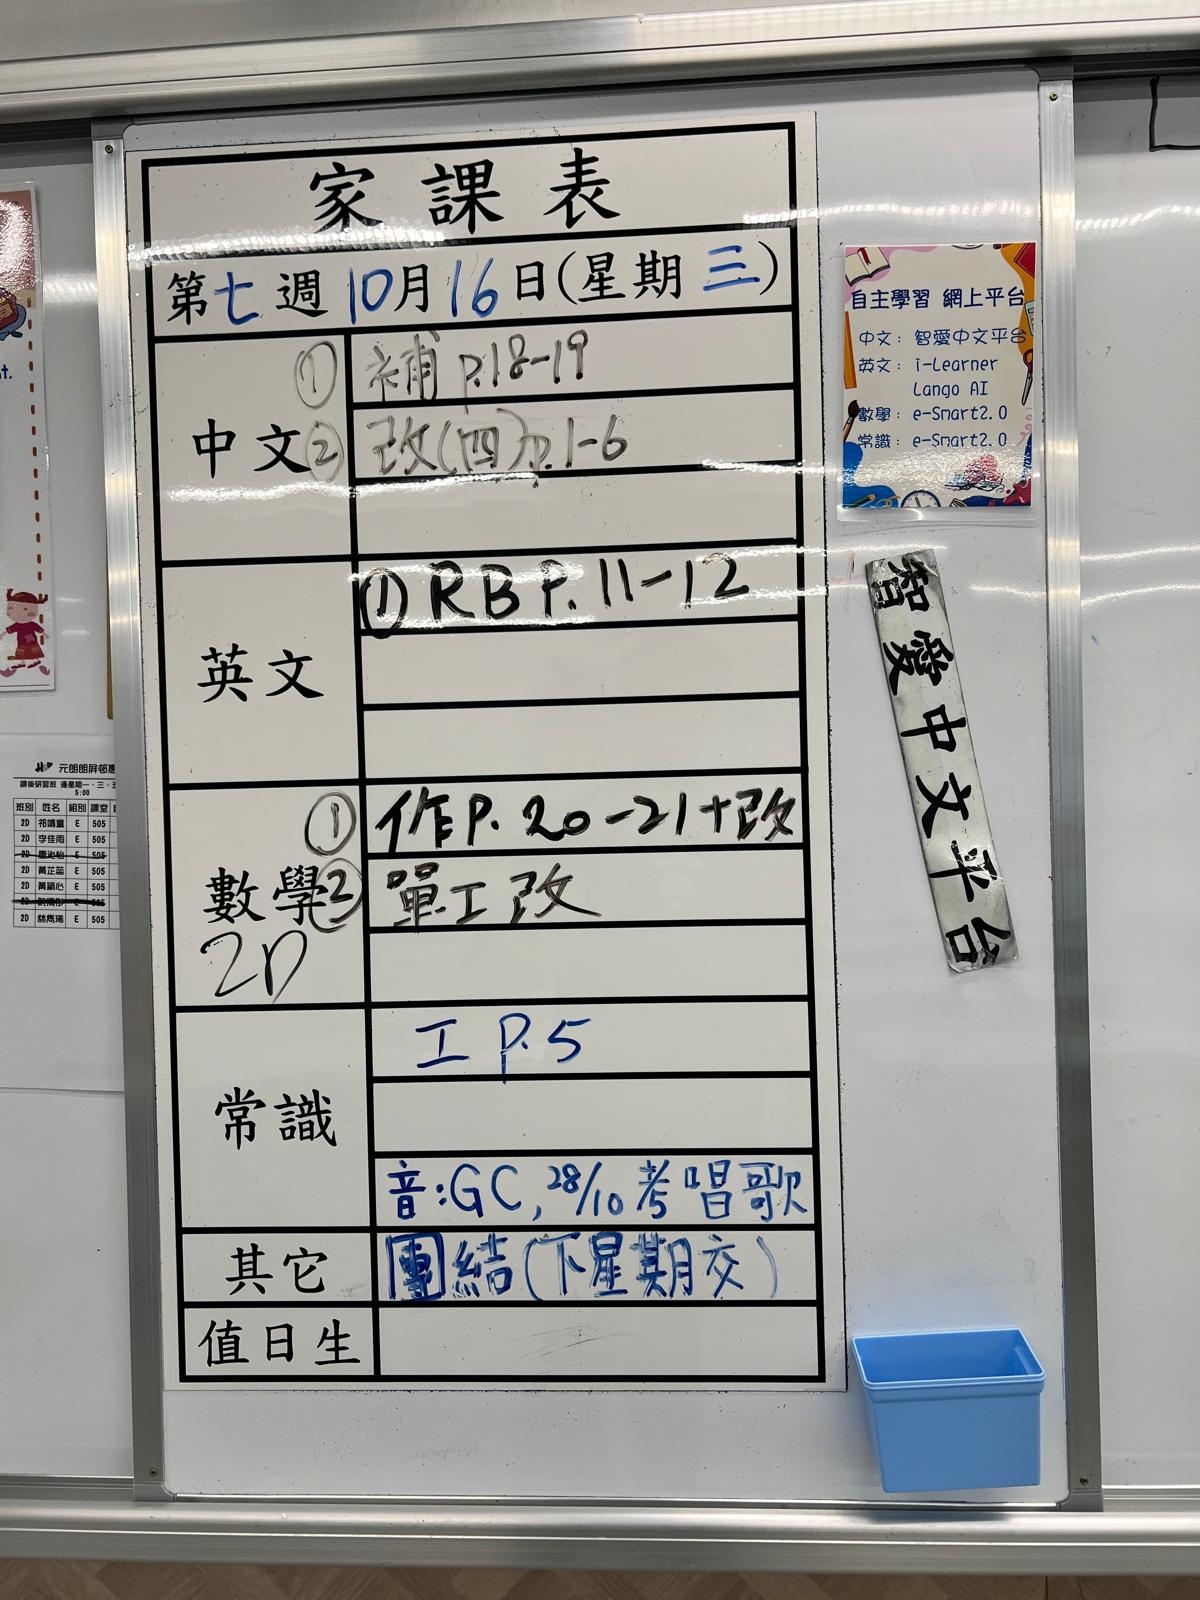 家課表
第七週 10月16日(星期三)
中文
① 補 p.18-19
② 改(四)p.1-6
英文
① RB P.11-12
數學
2D
① 作 P.20-21+改
② 單工改
常識
工 P.5
音:GC, 28/10 考唱歌
其它
團結(下星期交)
值日生
自主學習 網上平台
中文: 智愛中文平台
英文: i-Learner
Lango AI
數學: e-Smart2.0
常識: e-Smart2.0
智愛中文平台
元朗朗屏邨
課後研習班 逢星期一、三、五
5:00
班別 姓名 組別 課室
2D E 505
2D 李佳雨 E 505
2D E 505
2D 黃芷蕊 E 505
2D 黃穎心 E 505
2D E 505
2D E 505